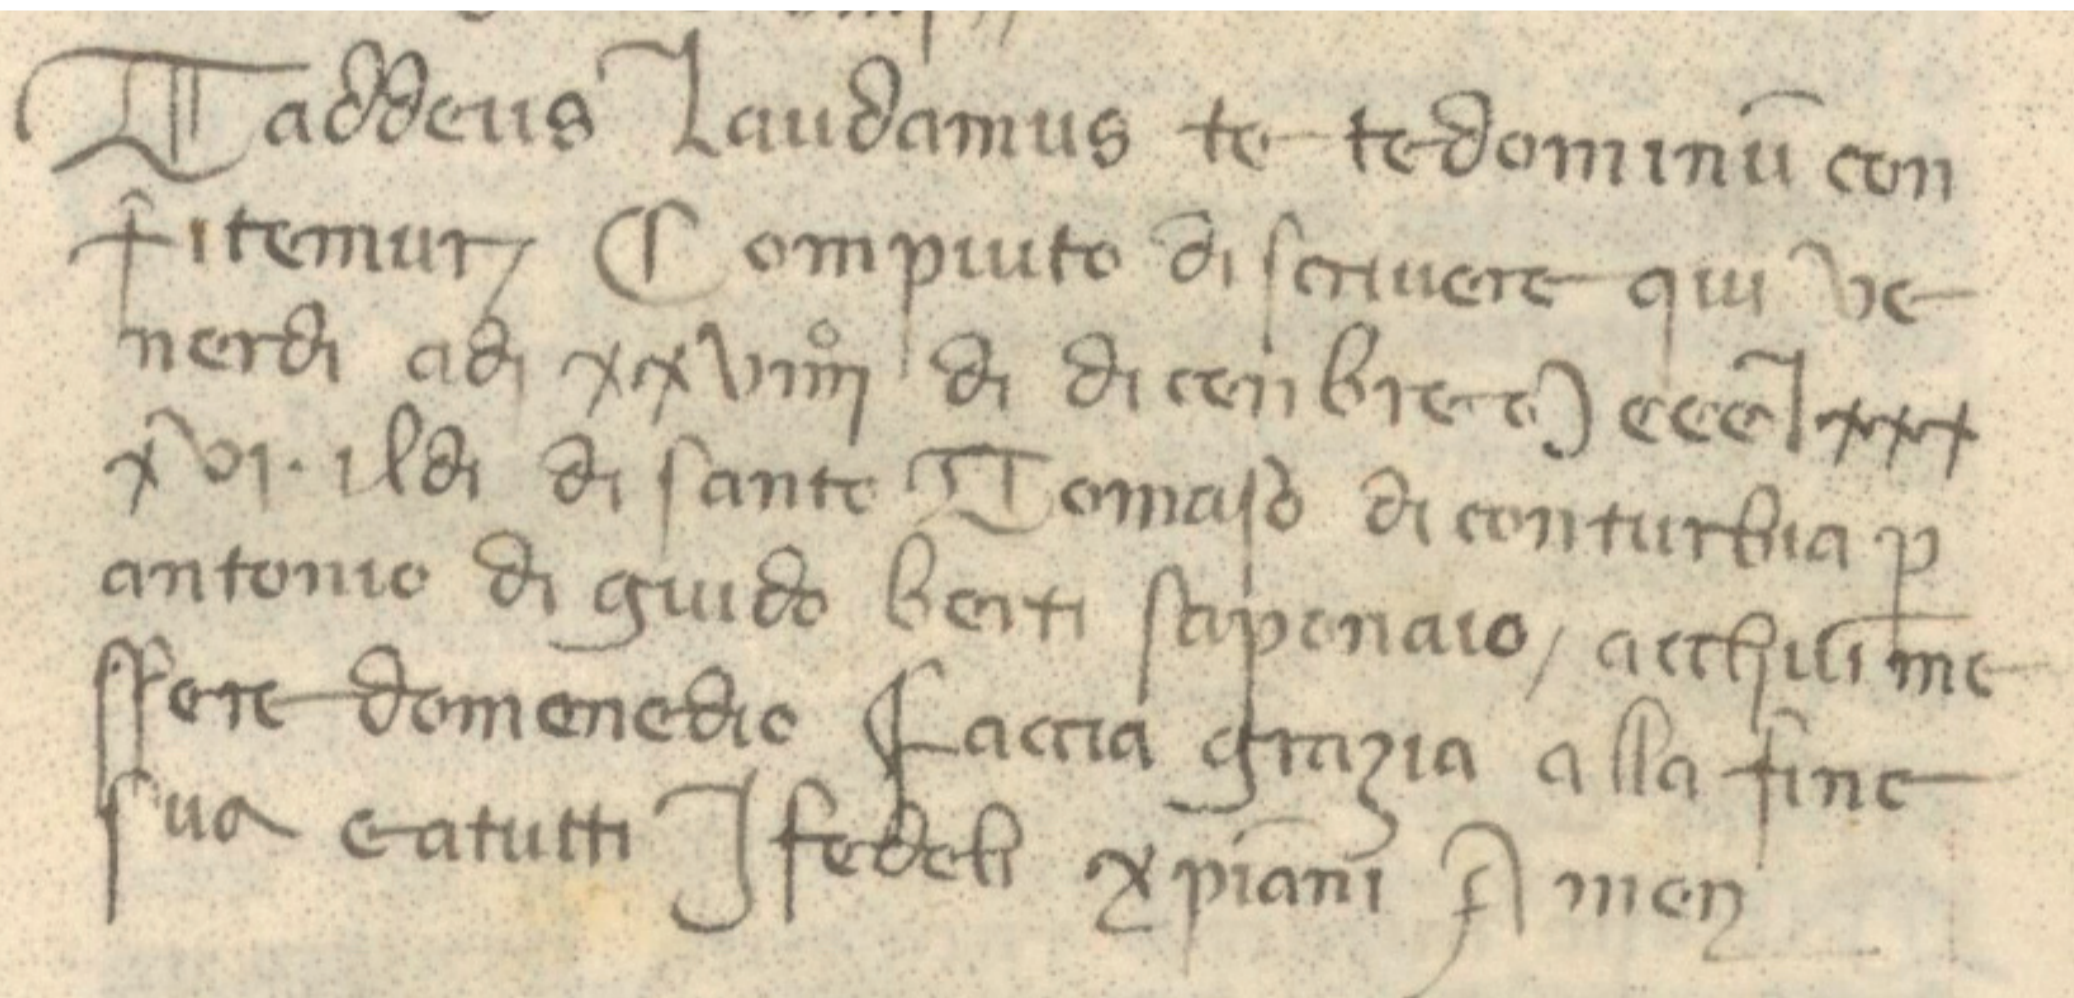 Taddeus laudamus te te dominū con
fitemur, Compiuto di scriuere qui ve
nerdi adi xxviiijº di dicenbre
xvi · il di di santo Tomaso di conturbia p
antonio di guido berti saponaio / acchui
ssere domenedio faccia grazia alla fine
sua e a tutti I fedeli xp̄iani Amen